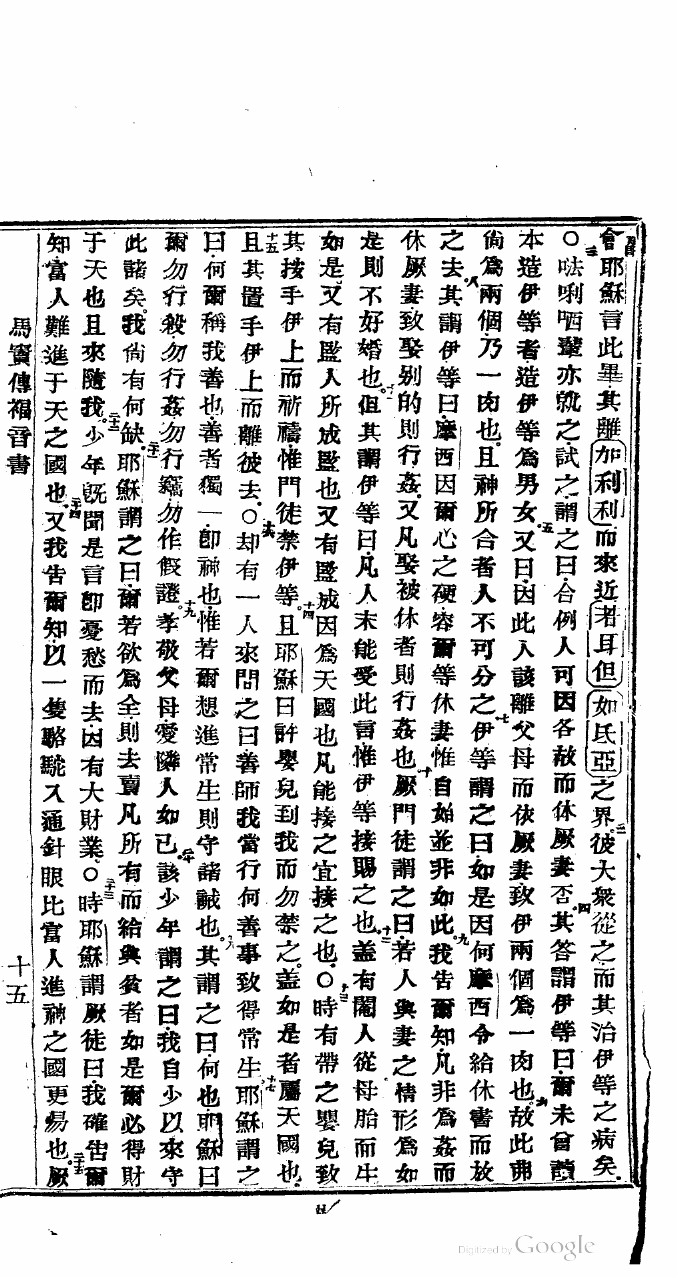 會耶穌言此畢其離加利利而來近若耳但如氏亞之界彼大衆從之而其治伊等之病矣
○㖿唎哂輩亦就之試之謂之曰合例人可因各故而休厥妻否其答謂伊等曰爾未曾讀
本造伊等者造伊等爲男女又曰因此人該離父母而依厥妻致伊兩個爲一肉也故此弗
尚爲兩個乃一肉也且神所合者人不可分之伊等謂之曰如是因何摩西令給休書而放
之去其謂伊等曰摩西因爾心之硬容爾等休妻惟自始並非如此我告爾知凡非爲姦而
休厥妻致娶別的則行姦又凡娶被休者則行姦也厥門徒謂之曰若人與妻之情形爲如
是則不好婚也但其謂伊等曰凡人未能受此言惟伊等接賜之也蓋有閹人從母胎而生
如是又有閹人所成閹也又有閹成因爲天國也凡能接之宜接之也○時有帶之嬰兒致
其按手伊上而祈禱惟門徒禁伊等且耶穌曰許嬰兒到我而勿禁之蓋如是者屬天國也
且其置手伊上而離彼去○却有一人來問之曰善師我當行何善事致得常生耶穌謂之
曰何爾稱我善也善者獨一卽神也惟若爾想進常生則守諸誡也其謂之曰何也耶穌曰
爾勿行殺勿行姦勿行竊勿作假證孝敬父母愛隣人如己該少年謂之曰我自少以來守
此諸矣我尚有何缺耶穌謂之曰爾若欲爲全則去賣凡所有而給與貧者如是爾必得財
于天也且來隨我少年旣聞是言卽憂愁而去因有大財業○時耶穌謂厥徒曰我確告爾
知富人難進于天之國也又我告爾知以一隻駱駝入通針眼比富人進神之國更易也厥
馬竇傳福音書
十五
Digitized by Google